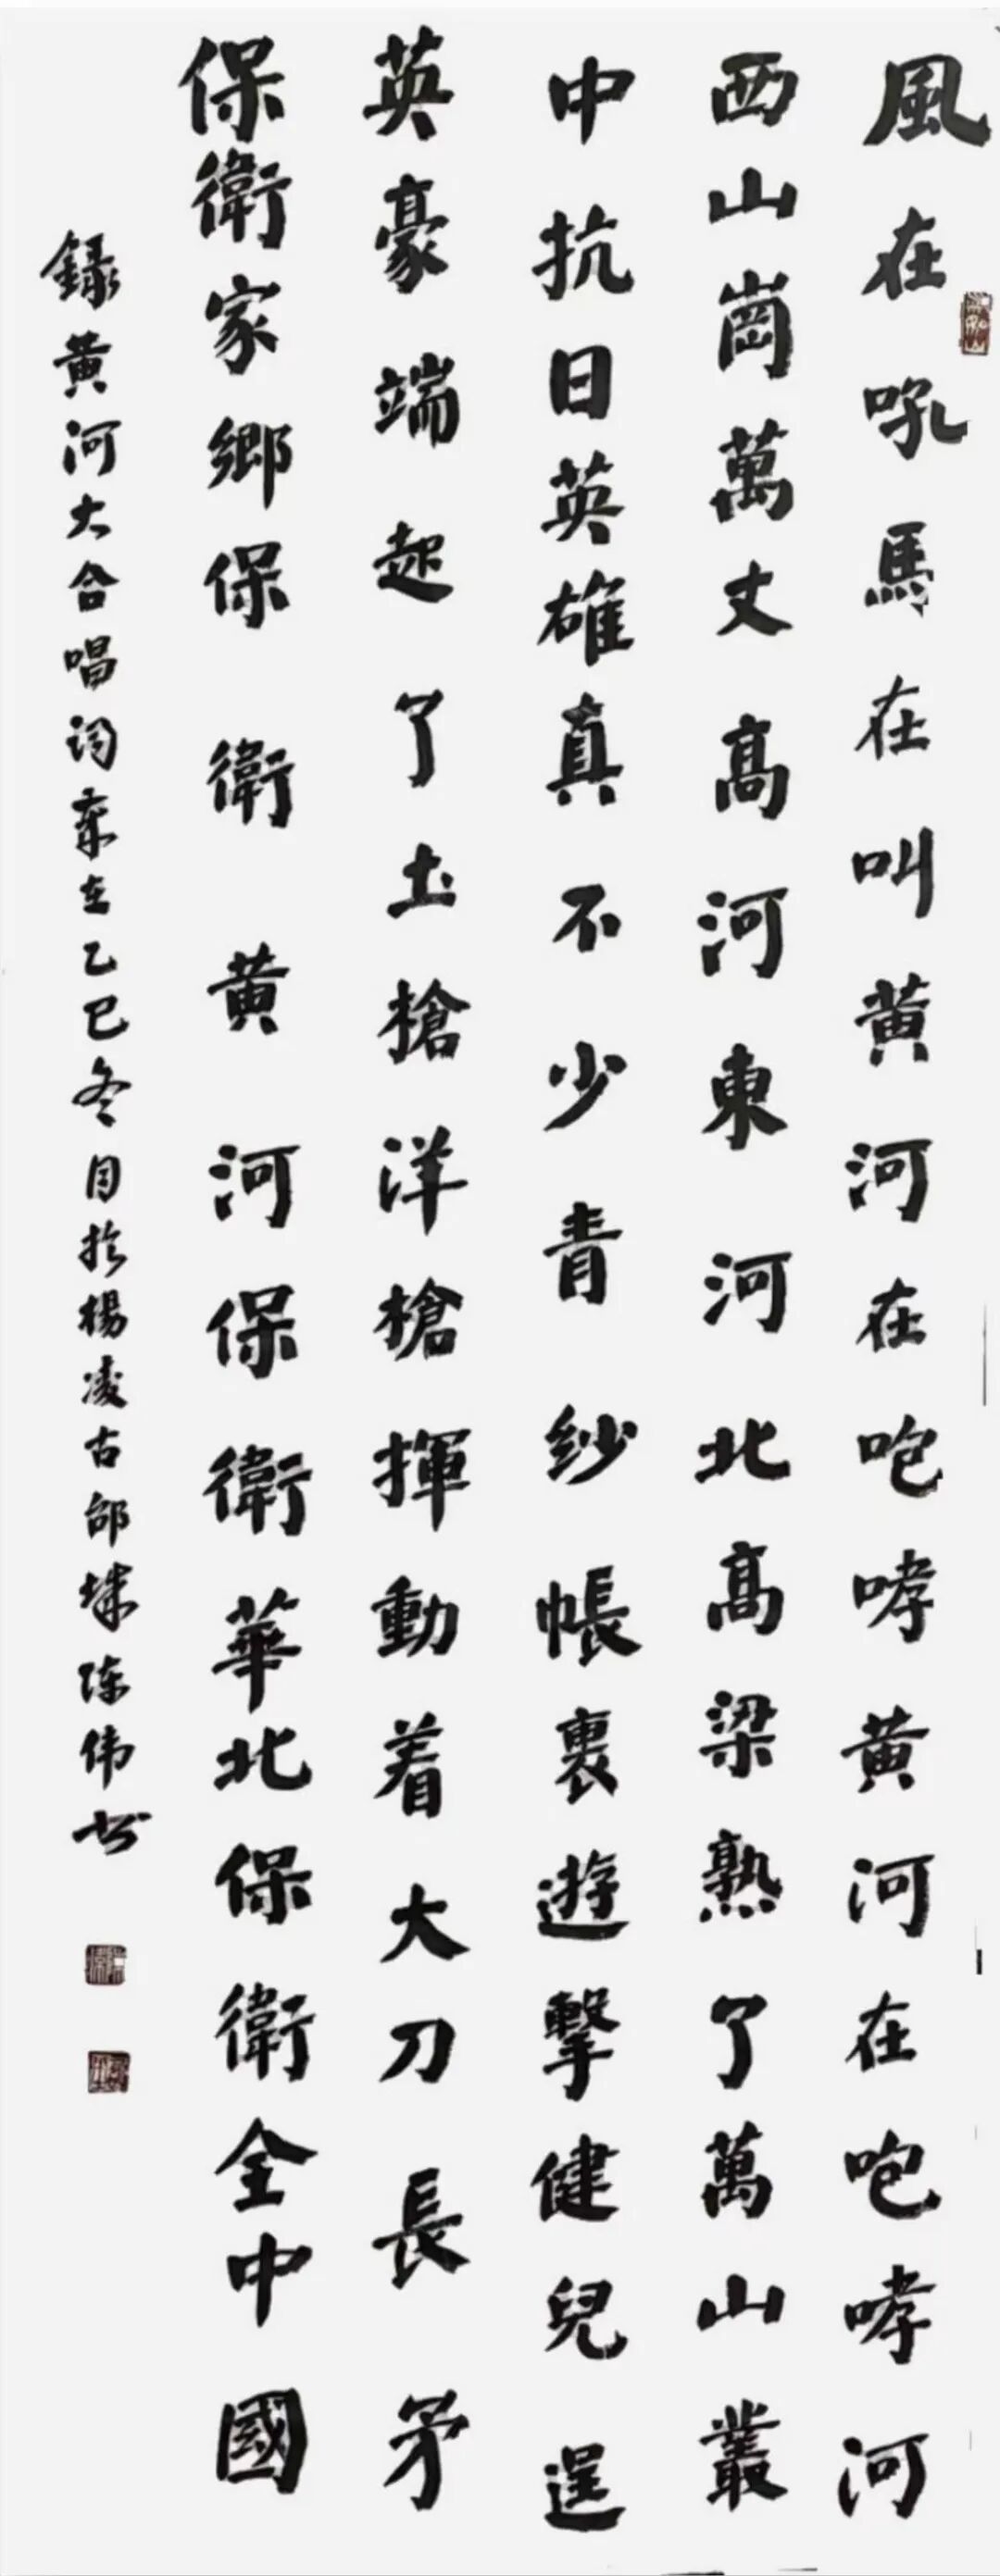 風在吼馬在叫黄河在咆哮黄河在咆哮河
西山崗萬丈髙河東河北髙梁熟了萬山叢
中抗日英雄真不少青纱帳裏遊擊健兒逞
英豪端起了土槍洋槍揮動着大刀長矛
保衛家鄉保衛黄河保衛華北保衛全中國
録黄河大合唱词歲在乙巳冬月於楊凌古邰城陈伟书